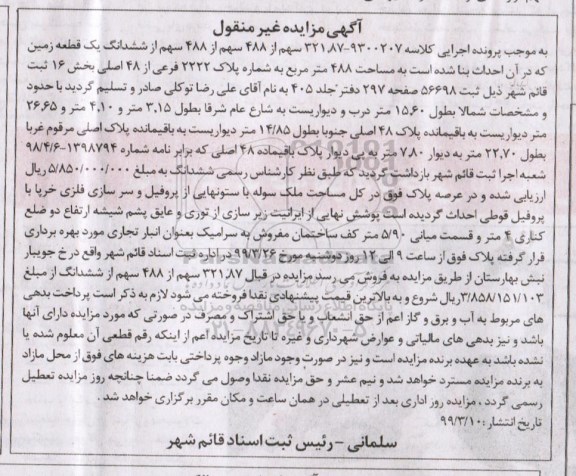 آگهی مزایده غیر منقول
به موجب پرونده اجرایی کلاسه ۹۳۰۰۲۰۷-۳۲۱,۸۷ سهم از ۴۸۸ سهم از ۴۸۸ سهم از ششدانگ یک قطعه زمین
که در آن احداث بنا شده است به مساحت ۴۸۸ متر مربع به شماره پلاک ۲۲۲۲ فرعی از ۴۸ اصلی بخش ۱۶ ثبت
قائم شهر ذیل ثبت ۵۶۶۹۸ صفحه ۲۹۷ دفتر جلد ۴۰۵ به نام آقای علی رضا توکلی صادر و تسلیم گردید با حدود
و مشخصات شمالا بطول ۱۵,۶۰ متر درب و دیواریست به شارع عام شرقا بطول ۳,۱۵ متر و ۴,۱۰ متر و ۲۶,۶۵
متر دیواریست به باقیمانده پلاک ۴۸ اصلی جنوبا بطول ۱۴/۸۵ متر دیواریست به باقیمانده پلاک اصلی مرقوم غربا
بطول ۲۲,۷۰ متر به دیوار ۷,۸۰ متر به پی دیوار پلاک باقیمانده ۴۸ اصلی که برابر نامه شماره ۱۳۹۸۷۹۴-۹۸/۴/۶
شعبه اجرا ثبت قائم شهر بازداشت گردید که طبق نظر کارشناس رسمی ششدانگ به مبلغ ۵/۸۵۰/۰۰۰/۰۰۰ ریال
ارزیابی شده و در عرصه پلاک فوق در کل مساحت ملک سوله با ستونهایی از پروفیل و سر سازی فلزی خرپا با
پروفیل قوطی احداث گردیده است پوشش نهایی از ایرانیت زیر سازی از توری و عایق پشم شیشه ارتفاع دو ضلع
کناری ۴ متر و قسمت میانی ۵/۹۰ متر کف ساختمان مفروش به سرامیک بعنوان انبار تجاری مورد بهره برداری
قرار گرفته پلاک فوق از ساعت ۹ الی ۱۲ روز دوشنبه مورخ ۹۹/۳/۲۶ در اداره ثبت اسناد قائم شهر واقع در خ جویبار
نبش بهارستان از طریق مزایده به فروش می رسد مزایده در قبال ۳۲۱,۸۷ سهم از ۴۸۸ سهم از ششدانگ از مبلغ
۳/۸۵۸/۱۵۱/۱۰۳ ریال شروع و به بالاترین قیمت پیشنهادی نقدا فروخته می شود لازم به ذکر است پرداخت بدهی
های مربوط به آب و برق و گاز اعم از حق انشعاب و یا حق اشتراک و مصرف در صورتی که مورد مزایده دارای آنها
باشد و نیز بدهی های مالیاتی و عوارض شهرداری و غیره تا تاریخ مزایده اعم از اینکه رقم قطعی آن معلوم شده یا
نشده باشد به عهده برنده مزایده است و نیز در صورت وجود مازاد وجوه پرداختی بابت هزینه های فوق از محل مازاد
به برنده مزایده مسترد خواهد شد و نیم عشر و حق مزایده نقدا وصول می گردد ضمنا چنانچه روز مزایده تعطیل
رسمی گردد ، مزایده روز اداری بعد از تعطیلی در همان ساعت و مکان مقرر برگزاری خواهد شد .
تاریخ انتشار : ۹۹/۳/۱۰
سلمانی – رئیس ثبت اسناد قائم شهر